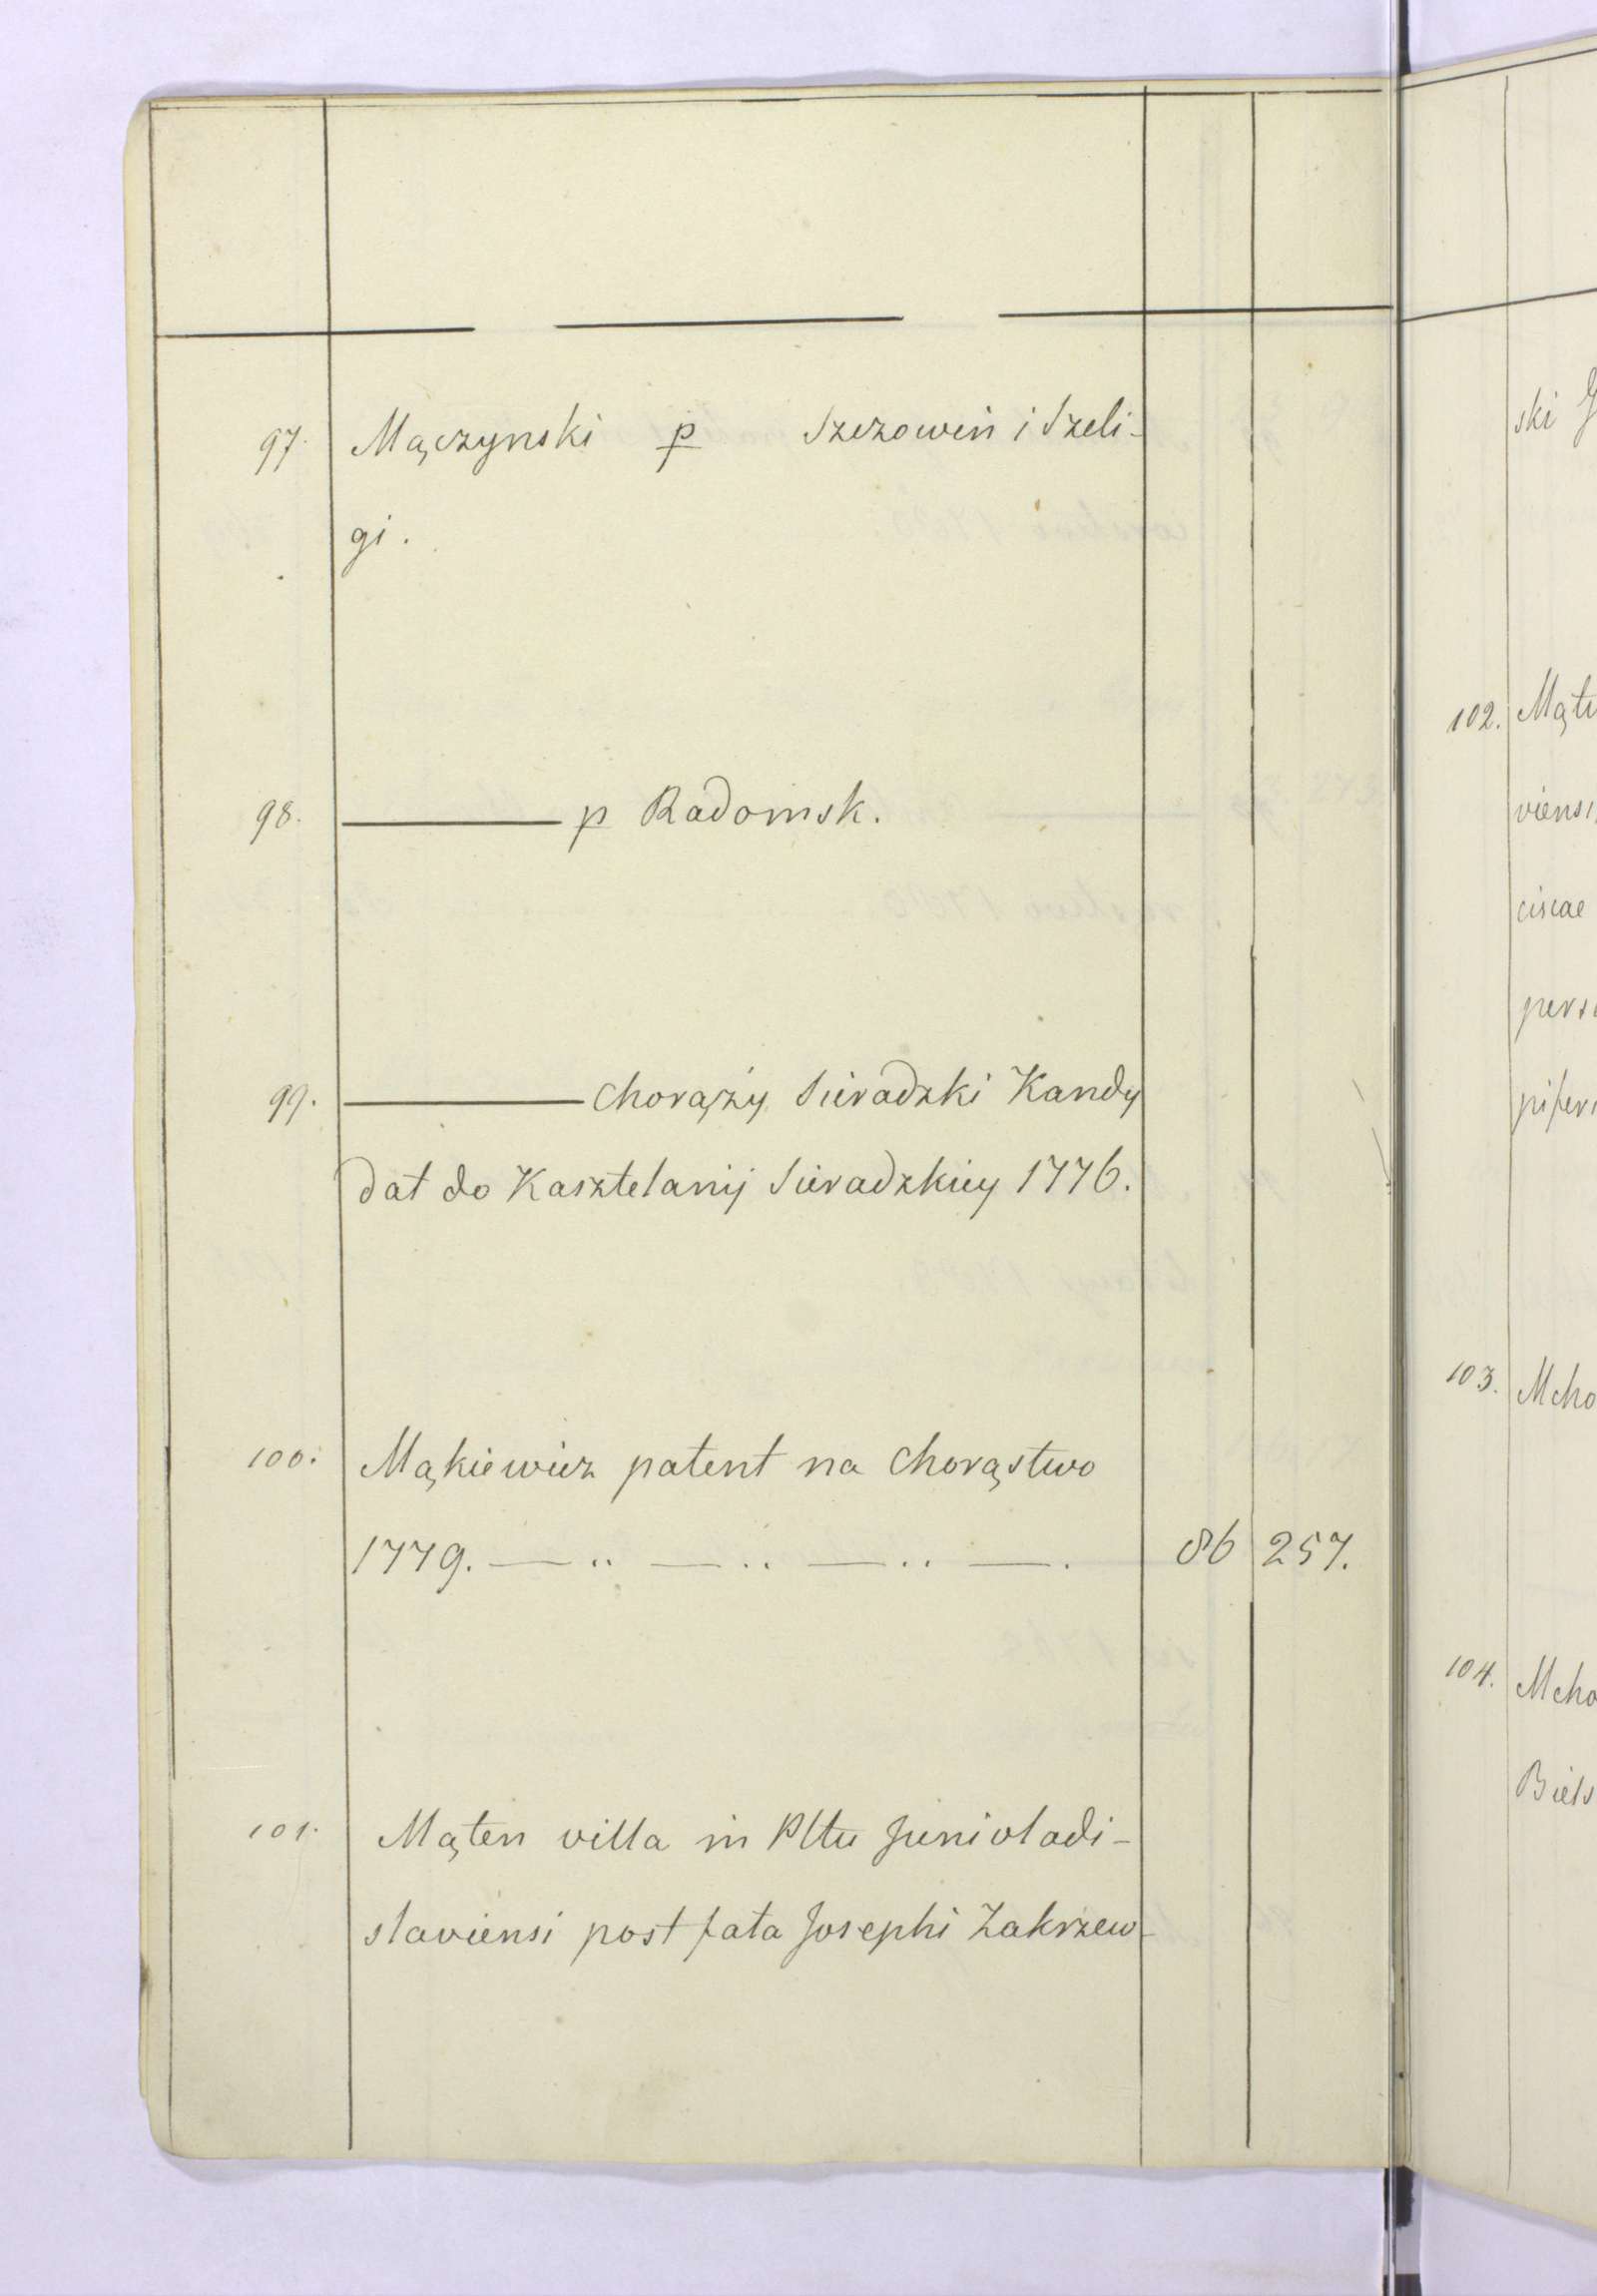 97. Mączynski p Szczowin i Szeli-
gi.
98. ——— p Radomsk.
99. ——— Chorąży Sieradzki Kandy
dat do Kasztelanij Sieradzkiey 1776.
100. Mąkiewicz patent na Chorąstwo
1779. — .. — .. — .. — . 86 257.
101. Mąten villa in Pltu Junivladi-
slaviensi post fata Josephi Zakrzew-
ski
102. Mąt
viensi
cisiae
pers
103. Mcho
104. Mcho
Biels